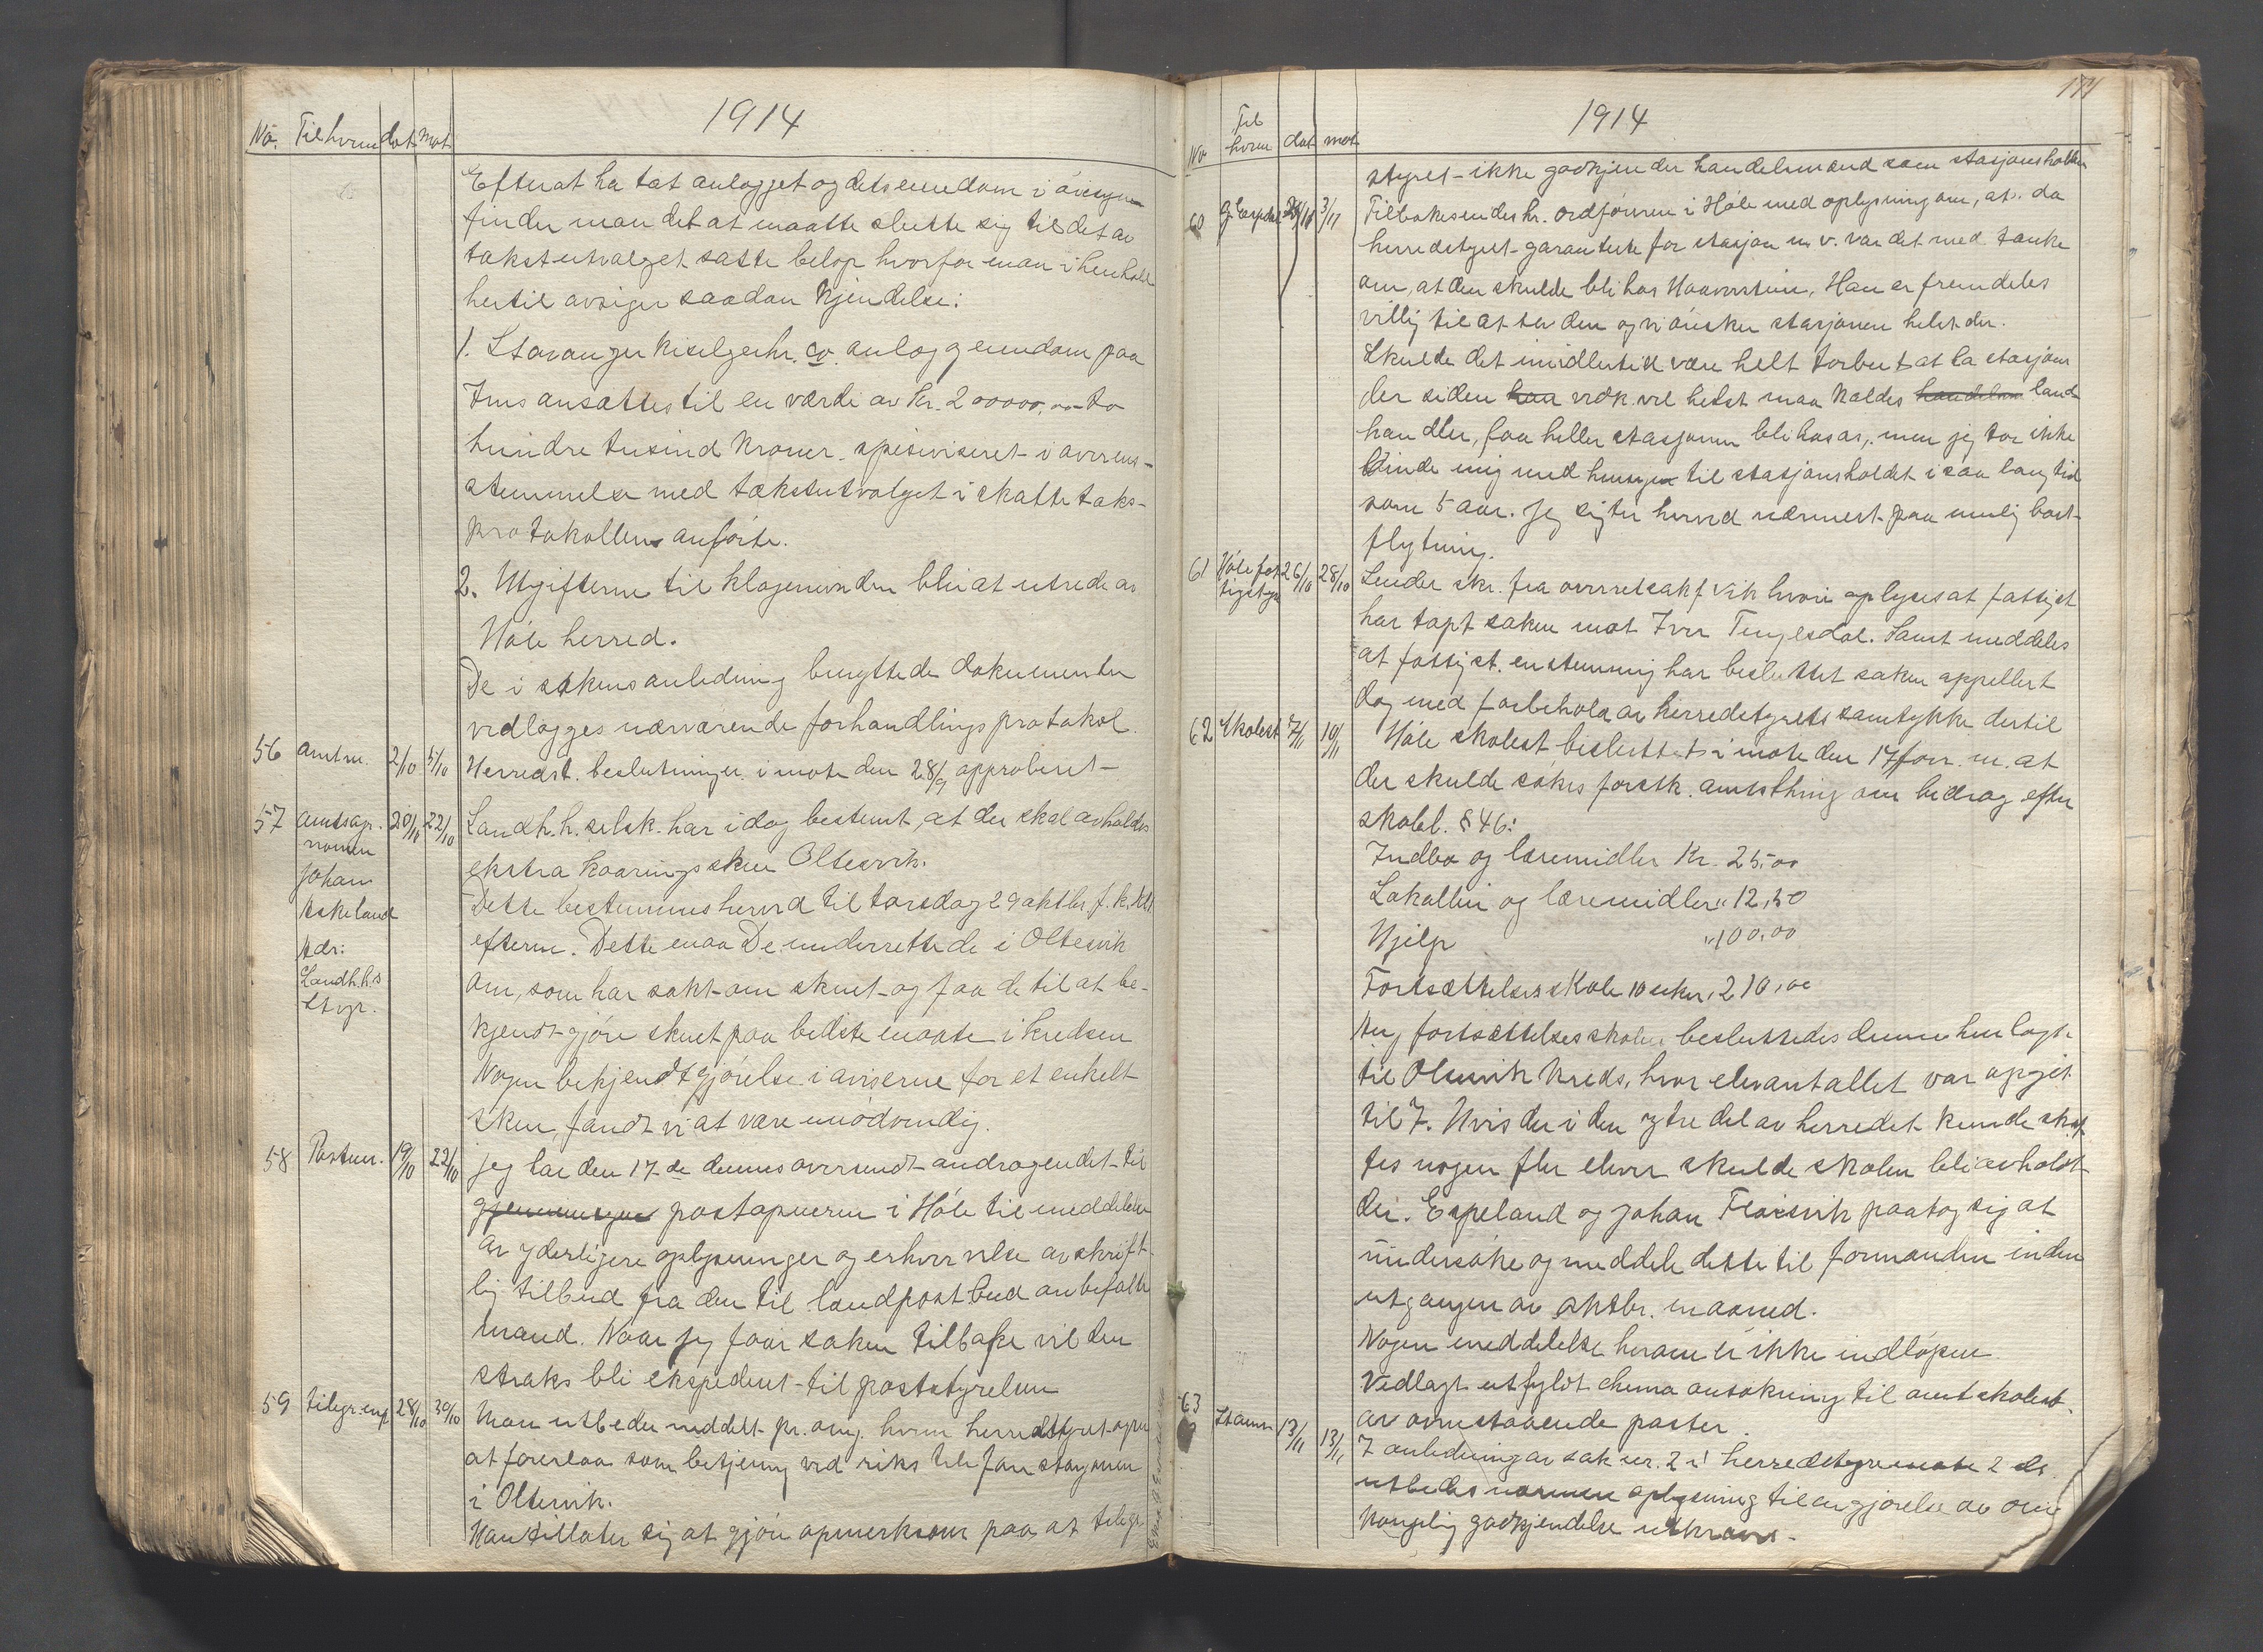 1914
No. Til hvem dat. mot.
Efterat ha tat anlægget og dets eiendom i øiesyn
finder man det at maatte slutte sig til det av
takstutvalget satte beløp hvorfor man i henhold
hertil avsiger saadan kjendelse:
1. Stavanger Kiselgurhr. co. anlæg og eiendom paa
Ims ansættes til en værdi av kr. 200000,00 to
hundre tusind kroner. spesiviseret i overens-
stemmelse med takstutvalget i skattetakst-
protokollen anførte.
2. Utgifterne til klagenævnden blir at utrede av
Høle herred.
De i sakens anledning benyttede dokumenter
vedlægges nærværende forhandlingsprotokol.
56 amtm. 2/10 5/10 Herredst. beslutninger i møte den 28/9 approberet
57 amtsagronomen Johan Askeland Adr: Landh.h.s Stvgr. 20/10 22/10 Landh.h. selsk. har idag bestemt, at der skal avholdes
ekstra kaaringsskue Oltesvik.
Dette bestemmes herved til torsdag 29 oktbr. f. k.
efterm. Dette maa De underrette de i Oltesvik
om, som har søkt om skuet og faa de til at be-
kjendtgjøre skuet paa bedste maate i kredsen
Nogen bekjendtgjørelse i aviserne for et enkelt
skue, fandt vi at være unødvendig.
58 Postm. 19/10 22/10 Jeg har den 17de dennes oversendt andragendet til
postapneren i Høle til meddelelse
av yderligere oplysninger og erhvervelse av skrift-
lig tilbud fra den til landpostbud anbefalte
mand. Naar jeg faar saken tilbake vil den
straks bli ekspederet til poststyrelsen
59 telegr.insp. 28/10 30/10 Man utbeder meddelt pr. omg. hvem herredstyret agter
at foreslaa som betjening ved rikstelefonstasjonen
i Oltesvik.
Man tillater sig at gjøre opmerksom paa at telegr.
171
1914
No Til hvem dat. mot.
styret ikke godkjender handelsmænd som stasjonsholder
60 G. Espeland 29/10 3/11 Tilbakesendes hr. ordføreren i Høle med oplysning om, at da
herredstyret garanterte for stasjon m. v. var det med tanke
om, at den skulde bli hos Haaverstein, Han er fremdeles
villig til at ta den og vi ønsker stasjonen helst der.
Skulde det imidlertid være helt forbudt at ha stasjon
der siden han vedk. vel helst maa kaldes handelsm land-
handler, faa heller stasjonen bli hos os, men jeg tør ikke
binde mig med hensyn til stasjonsholdet i saa lang tid
som 5 aar. Jeg sigter herved nærmest paa mulig bort-
flytning.
61 Høle fattigstyre 26/10 28/10 Sender skr. fra overretssakf. Vik hvori oplyses at fattigst.
har tapt saken mot Iver Tengesdal. Samt meddeles
at fattigst. enstemmig har besluttet saken appellert
dog med forbehold av herredstyrets samtykke dertil
62 Skolest. 7/11 10/11 Høle skolest. besluttet i møte den 17 forr. m. at
der skulde søkes forstk. amtsthing om bidrag efter
skolel. § 46:
Indbo og læremidler kr. 25,00
Lokalleie og læremidler " 12,50
Hjelp " 100,00
Fortsættelsesskole 10 uker, 210,00
Ang fortsættelsesskolen besluttedes denne henlagt
til Olesvik kreds, hvor elevantallet var opgit
til 7. Hvis der i den ytre del av herredet kunde skaf-
fes nogen fler elever skulde skolen bli avholdt
der. Espeland og Johan Fløisvik paatog sig at
undersøke og meddele dette til formanden inden
utgangen av oktbr. maaned.
Nogen meddelelse herom er ikke indløpen
Vedlagt utfyldt skema ansøkning til amtskolest.
av ovenstaaende poster
63 Stamn 13/11 13/11 I anledning av sak nr. 2 i herredstyremøte 2 ds.
utbedes nærmere oplysning til avgjørelse av om
kongelig godkjendelse utkræves.